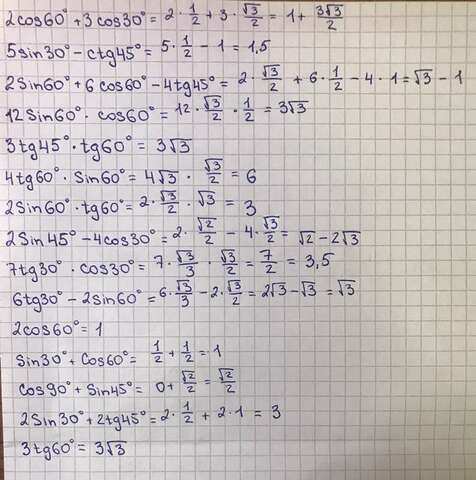 2cos60° + 3cos30° = 2 · 1/2 + 3 · √3/2 = 1 + 3√3/2
5sin30° - ctg45° = 5 · 1/2 - 1 = 1,5
2sin60° + 6cos60° - 4tg45° = 2 · √3/2 + 6 · 1/2 - 4 · 1 = √3 - 1
12sin60° · cos60° = 12 · √3/2 · 1/2 = 3√3
3tg45° · tg60° = 3√3
4tg60° · sin60° = 4√3 · √3/2 = 6
2sin60° · tg60° = 2 · √3/2 · √3 = 3
2sin45° - 4cos30° = 2 · √2/2 - 4 · √3/2 = √2 - 2√3
7tg30° · cos30° = 7 · √3/3 · √3/2 = 7/2 = 3,5
6tg30° - 2sin60° = 6 · √3/3 - 2 · √3/2 = 2√3 - √3 = √3
2cos60° = 1
sin30° + cos60° = 1/2 + 1/2 = 1
cos90° + sin45° = 0 + √2/2 = √2/2
2sin30° + 2tg45° = 2 · 1/2 + 2 · 1 = 3
3tg60° = 3√3